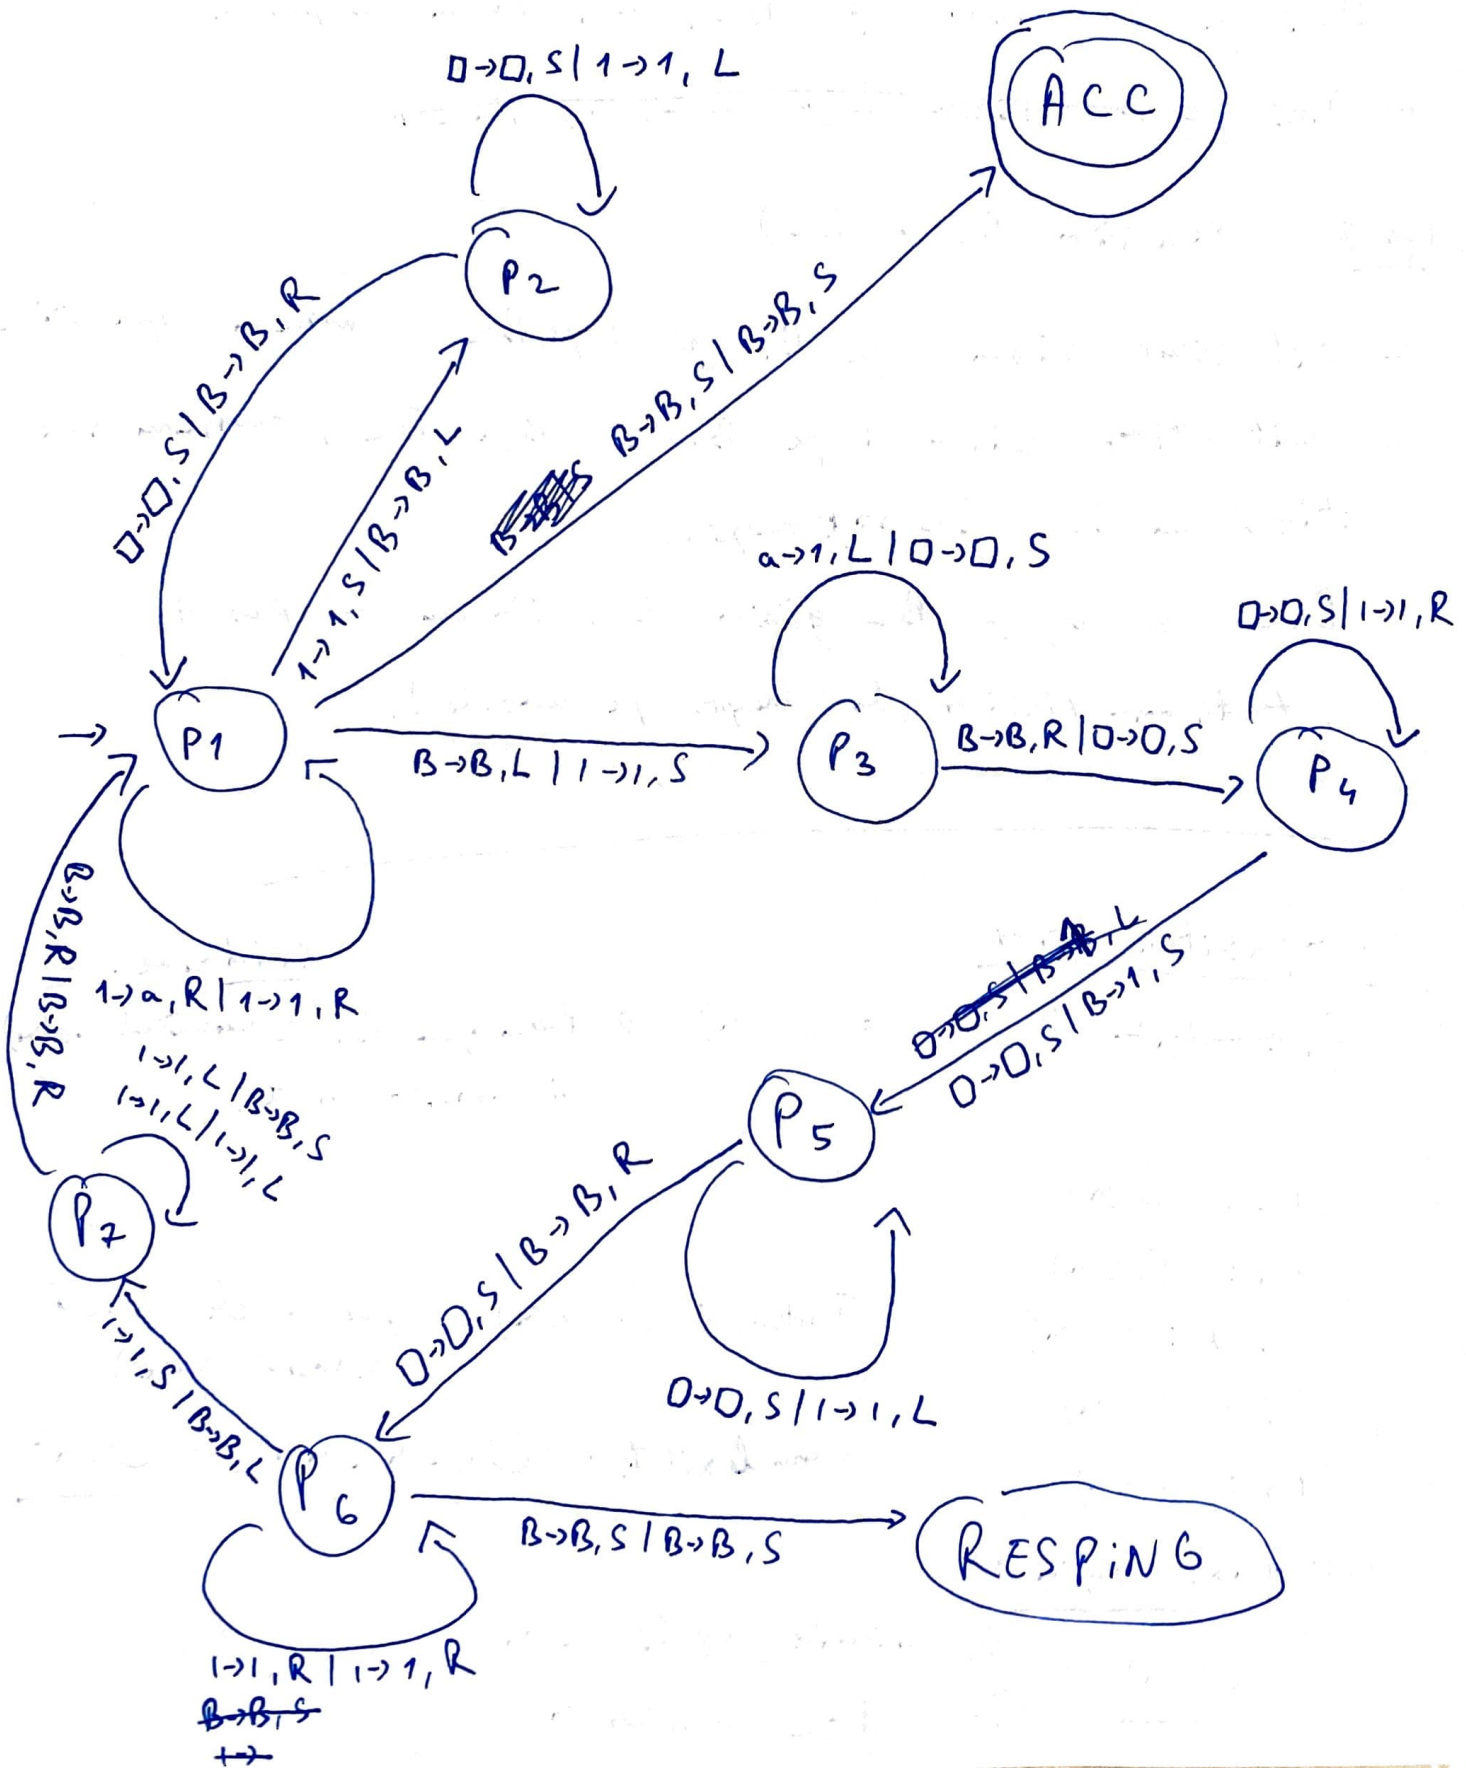 □→□, S | 1→1, L
ACC
P2
□→□, S | B→B, R
1→1, S | B→B, L
B→B, S | B→B, S
a→1, L | □→□, S
□→□, S | 1→1, R
P1
B→B, L | 1→1, S
P3
B→B, R | □→□, S
P4
B→B, R | B→B, R
1→a, R | 1→1, R
□→□, S | B→1, S
1→1, L | B→B, S
1→1, L | 1→1, L
P5
P7
□→□, S | B→B, R
□→□, S | 1→1, L
1→1, S | B→B, L
P6
B→B, S | B→B, S
RESPING
1→1, R | 1→1, R
B→B, S
1→